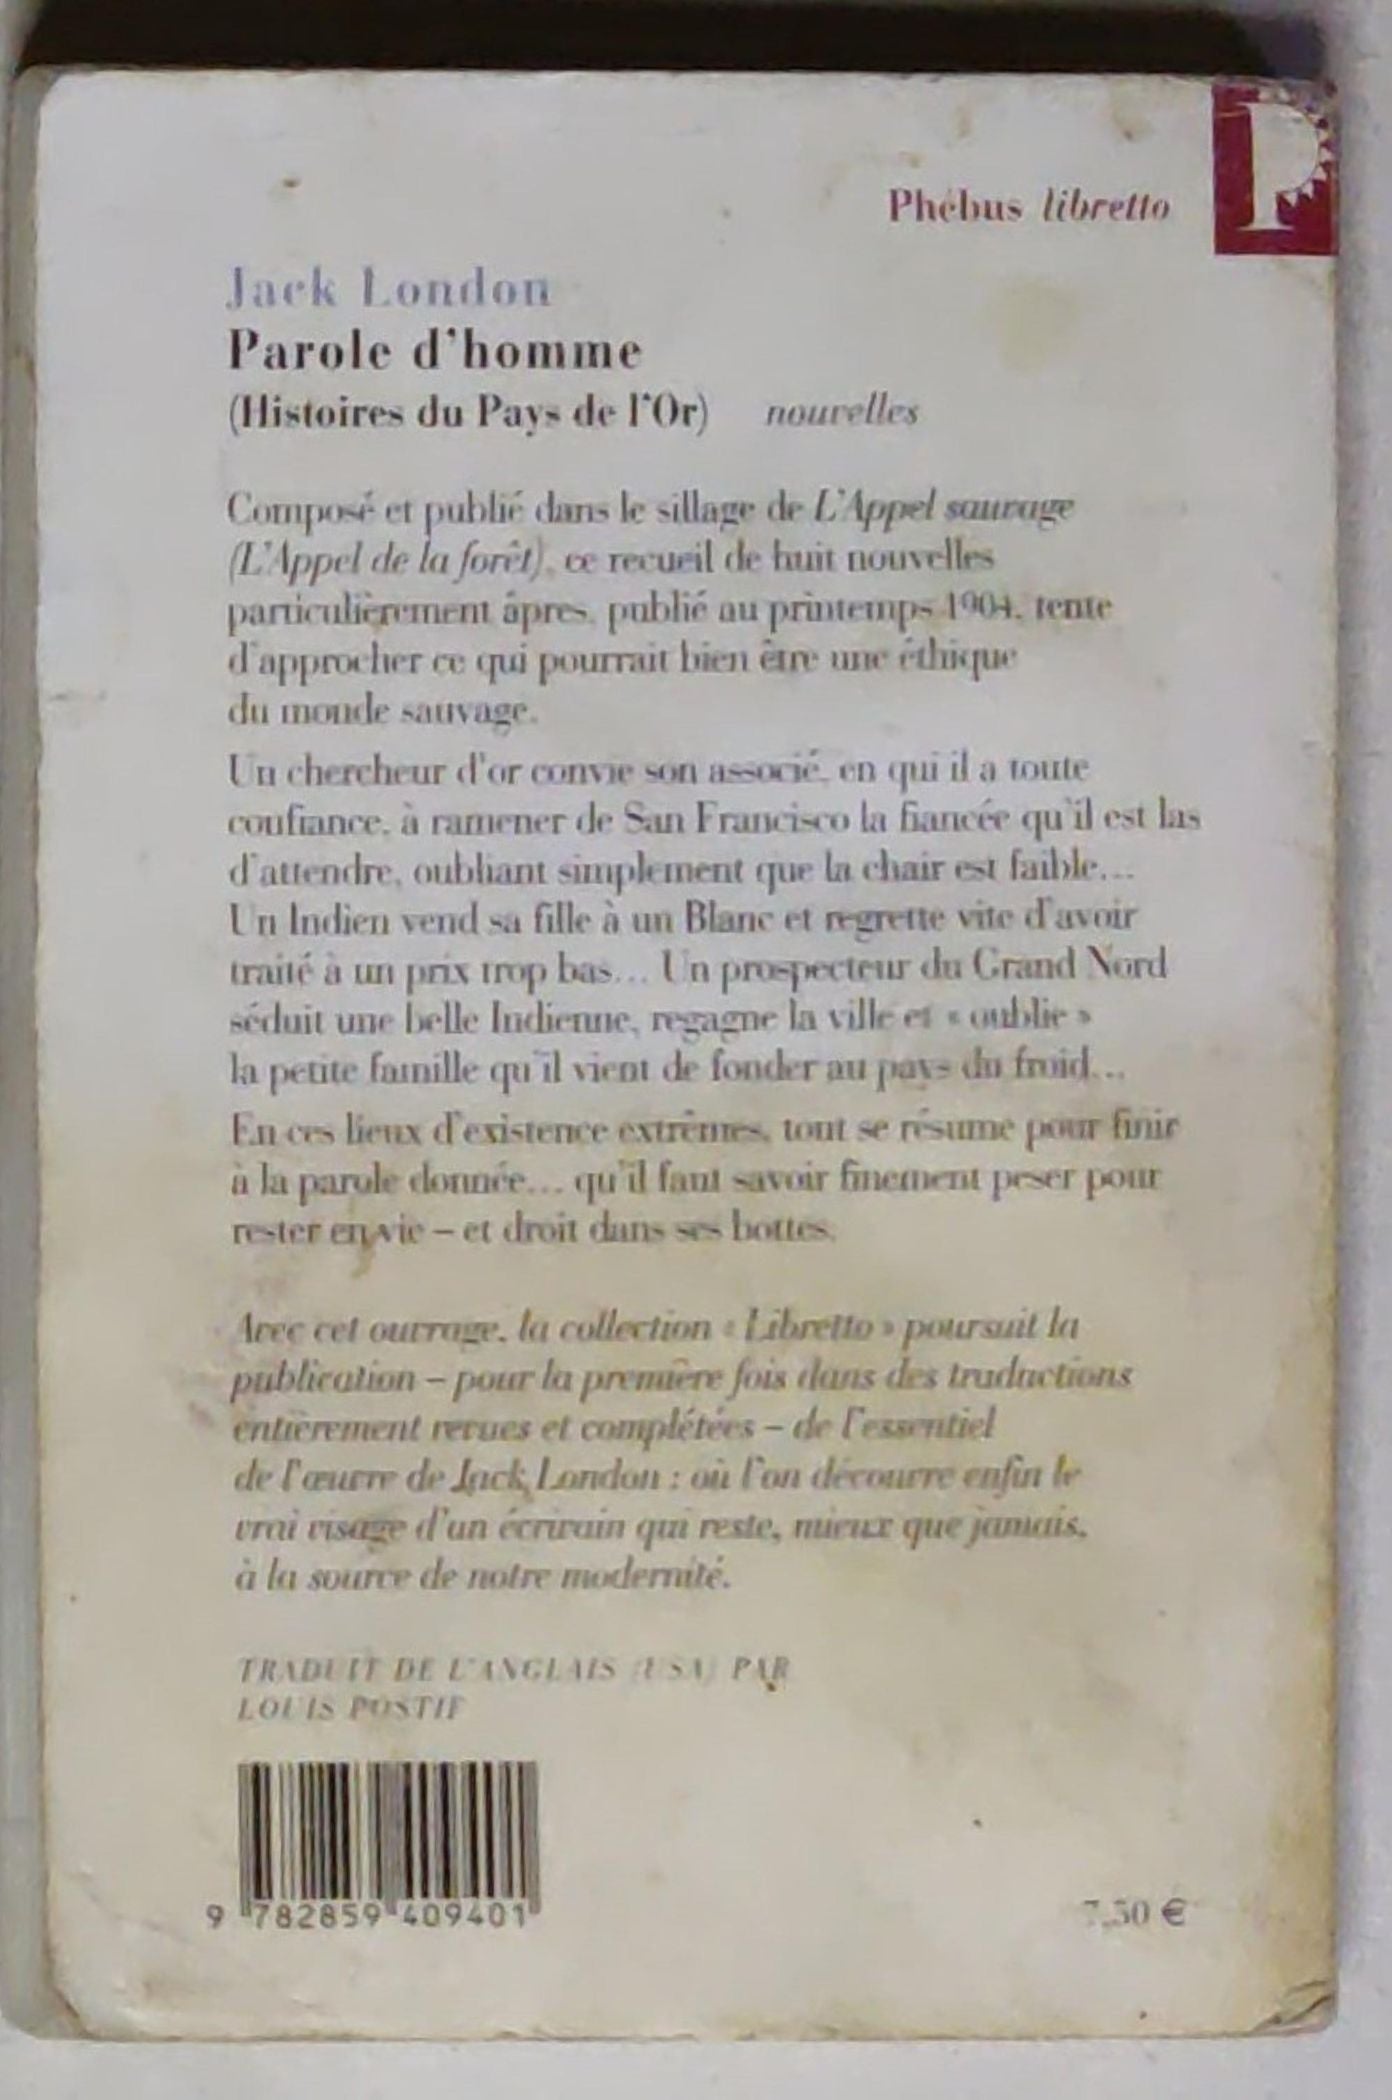 P
Phébus libretto
Jack London
Parole d'homme
(Histoires du Pays de l'Or) nouvelles
Composé et publié dans le sillage de L'Appel sauvage
(L'Appel de la forêt), ce recueil de huit nouvelles
particulièrement âpres, publié au printemps 1904, tente
d'approcher ce qui pourrait bien être une éthique
du monde sauvage.
Un chercheur d'or convie son associé, en qui il a toute
confiance, à ramener de San Francisco la fiancée qu'il est las
d'attendre, oubliant simplement que la chair est faible...
Un Indien vend sa fille à un Blanc et regrette vite d'avoir
traité à un prix trop bas... Un prospecteur du Grand Nord
séduit une belle Indienne, regagne la ville et « oublie »
la petite famille qu'il vient de fonder au pays du froid...
En ces lieux d'existence extrêmes, tout se résume pour finir
à la parole donnée... qu'il faut savoir finement peser pour
rester en vie – et droit dans ses bottes.
Avec cet ouvrage, la collection « Libretto » poursuit la
publication – pour la première fois dans des traductions
entièrement revues et complétées – de l'essentiel
de l'œuvre de Jack London : où l'on découvre enfin le
vrai visage d'un écrivain qui reste, mieux que jamais,
à la source de notre modernité.
TRADUIT DE L'ANGLAIS (USA) PAR
LOUIS POSTIF
9 782859 409401
7,50 €